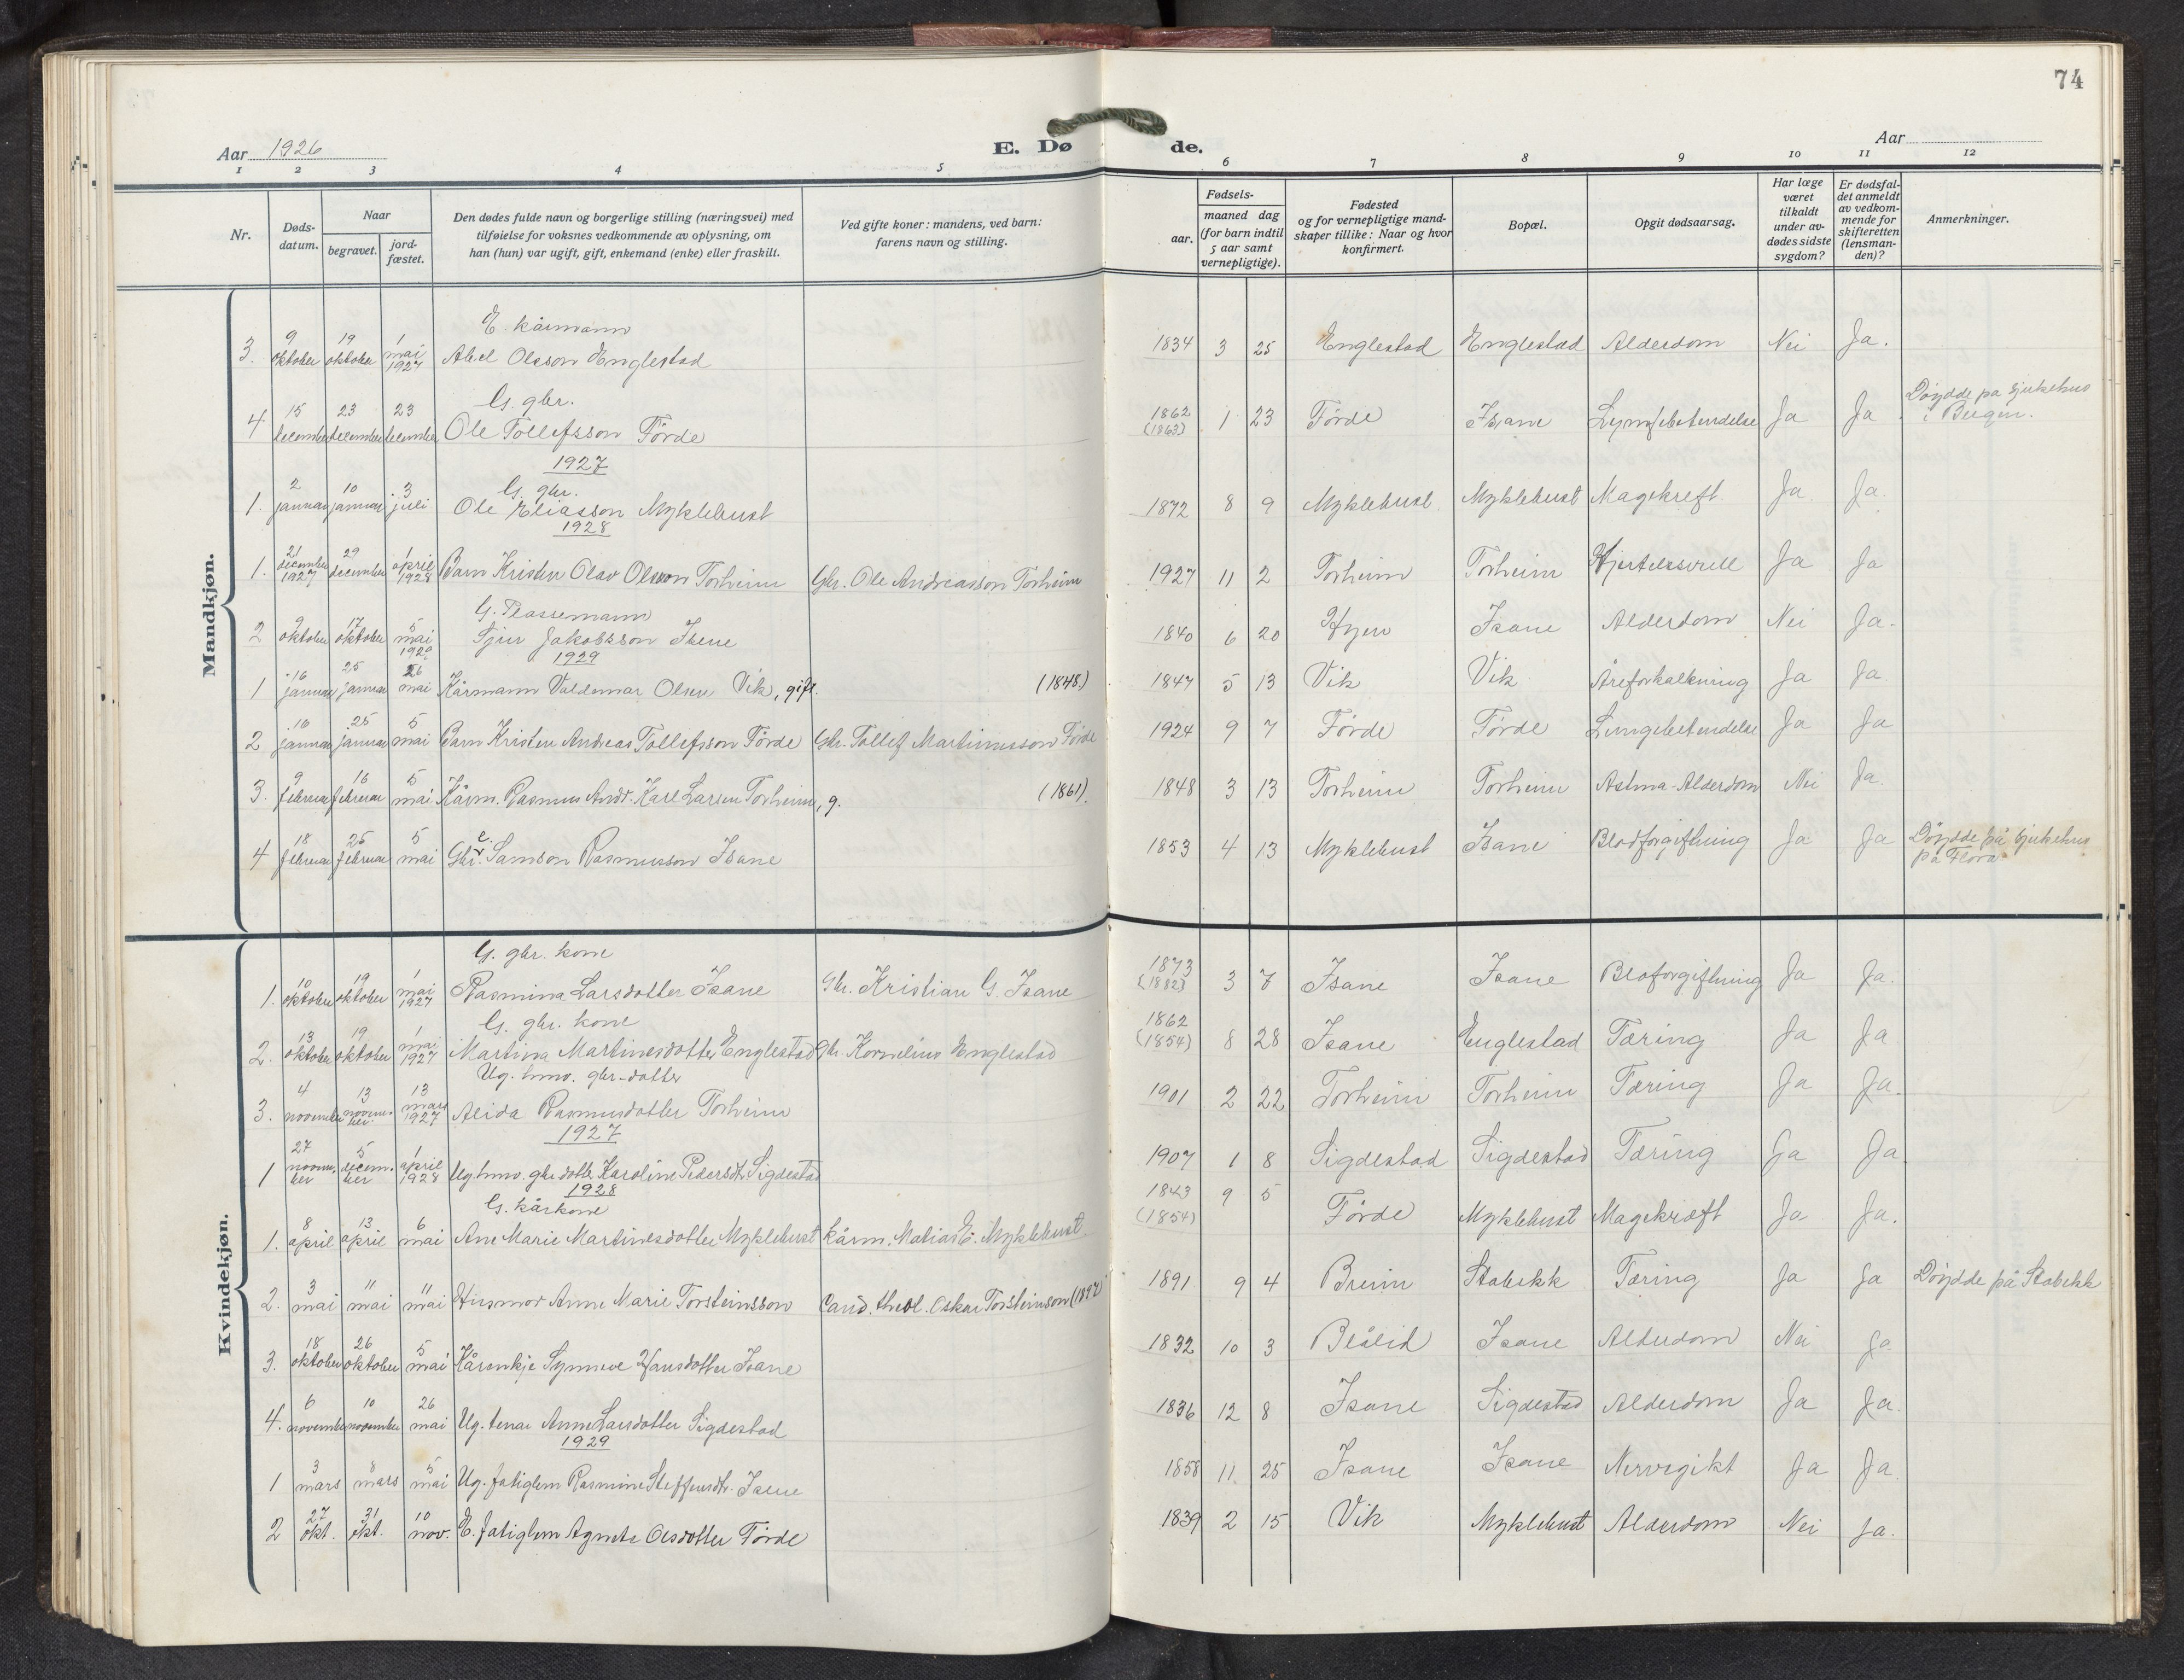 74
Aar 1926 E. Dø de. Aar
1 2 3 4 5 6 7 8 9 10 11 12
Nr. Døds-datum. Naar begravet. jord-fæstet. Den dødes fulde navn og borgerlige stilling (næringsvei) med tilføielse for voksnes vedkommende av oplysning, om han (hun) var ugift, gift, enkemand (enke) eller fraskilt. Ved gifte koner: mandens, ved barn: farens navn og stilling. Fødsels- aar. maaned dag (for barn indtil 5 aar samt vernepligtige). Fødested og for vernepligtige mand-skaper tillike: Naar og hvor konfirmert. Bopæl. Opgit dødsaarsag. Har læge været tilkaldt under av-dødes sidste sygdom? Er dødsfal-det anmeldt av vedkom-mende for skifteretten (lensman-den)? Anmerkninger.
Mandkjøn.
E. kårmann
3. 9 oktober 19 oktober 1 mai 1927 Abel Olsson Englestad 1834 3 25 Englestad Englestad Alderdom Nei Ja.
G. gbr.
4 15 december 23 december 23 december Ole Tollefsson Förde 1862 (1863) 1 23 Förde Isane Lymfebetendelse Ja Ja Döydde på sjukehus i Bergen.
1927
G. gbr.
1. 2 januar 10 januar 3 juli Ole Eliasson Myklebust 1872 8 9 Myklebust Myklebust Magekreft. Ja. Ja.
1928
1. 21 december 1927 29 december 1 april 1928 Barn Kristen Olav Olsson Torheim Gbr. Ole Andreasson Torheim 1927 11 2 Torheim Torheim Ja Ja
2 9 oktober 17 oktober 5 mai 1929 Jakobsson Isene 1840 6 20 Hyen Isane Alderdom Nei Ja.
1929
1 16 januar 25 januar 26 mai Kårmann Valdemar Olsen Vik, gift. (1848) 1847 5 13 Vik Vik Åreforkalkning Ja Ja
2 16 januar 25 januar 5 mai Barn Kristen Andreas Tollefsson Förde Gbr. Tollef Martinusson Förde 1924 9 7 Förde Förde Lungebetendelse Ja Ja
3. 9 februar 16 februar 5 mai Kårm. Rasmus Andr. Karl Larsen Torheim, g. (1861). 1848 3 13 Torheim Torheim Astma-Alderdom Nei Ja.
4 18 februar 25 februar 5 mai Gbr. e. Samson Rasmusson Isane 1853 4 13 Myklebust Isane Blodforgiftning Ja Ja Döydde på sjukehus på Florø.
Kvindekjøn.
G. gbr. kone
1. 10 oktober 19 oktober 1 mai 1927 Rasmina Larsdotter Isane Gbr. Kristian G. Isane 1873 (1882) 3 7 Isane Isane Bloforgiftning Ja Ja.
G. gbr. kone
2. 13 oktober 19 oktober 1 mai 1927 Martina Martinesdotter Englestad Gbr. Kornelius Englestad 1862 (1854) 8 28 Isane Englestad Tæring Ja Ja
Ug. hmo. gbr-dotter
3. 4 november 13 novem-ber. 13 mars 1927 Alida Rasmusdotter Torheim 1901 2 22 Torheim Torheim Tæring Ja Ja.
1927
1 27 novem-ber 5 decem-ber 1 april 1928 Ug. hmo. gbr dotter Karoline Pedersdtr. Sigdestad 1907 1 8 Sigdestad Sigdestad Tæring Ja Ja
1928
G. kårkone
1. 8 april 13 april 6 mai Ane Marie Martinesdotter Myklebust Kårm. Matias E. Myklebust. 1843 (1854) 9 5 Förde Myklebust Magekræft Ja Ja.
2. 3 mai 11 mai 11 mai Husmor Anne Marie Torsteinsson Cand. theol. Oskar Torsteinson (1897) 1891 9 4 Breim Stabekk Tæring Ja Ja Döydde på Stabekk
3. 18 oktober 26 oktober 5 mai Kårenkje Synneve Hansdotter Isane 1832 10 3 Blålid Isane Alderdom Nei Ja
4. 6 november 10 november 26 mai Ug. tenar Anne Larsdotter Sigdestad 1836 12 8 Isane Sigdestad Alderdom Ja Ja.
1929
1 3 mars 8 mars 5 mai Ug. fatiglem Rasmine Steffensdtr. Isene 1858 11 25 Isane Isane Nervegikt Ja Ja
2 27 okt. 31 okt. 10 nov. E. fatiglem Agnete Olsdotter Förde 1839 2 15 Vik Myklebust Alderdom Nei Ja.